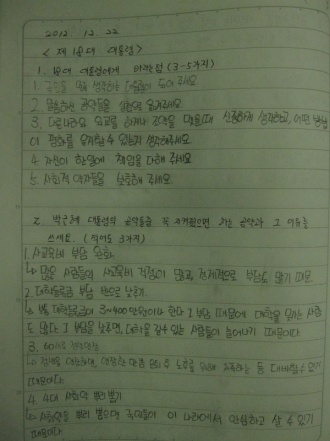 2012. 12. 22
< 제 18대 대통령 >
1. 18대 대통령에게 바라는점 (3~5가지)
1. 국민을 먼저 생각하는 대통령이 되어 주세요.
2. 말씀하신 공약들을 실현에 옮겨주세요
3. 다른나라와 외교를 하거나 조약을 맺을때 신중하게 생각하고, 어떤
이 평화를 유지할 수 있는지 생각해주세요
4. 자신이 한일에 책임을 다해 주세요
5. 사회적 약자들을 보호해 주세요.
2. 박근혜 대통령의 공약들중 꼭 지켜졌으면 하는 공약과 그 이유를
쓰세요. (적어도 3가지)
1. 사교육비 부담 완화.
↳ 많은 사람들의 사교육비 걱정이 많고, 경제적으로 부담도 많기 때문
2. 대학등록금 부담 반으로 낮추기.
↳ 보통 대학등록금이 3~400만원이나 한다. 그 부담 때문에 대학을 못가는 사람
도 많다. 그 부담을 낮추면, 대학을 갈수 있는 사람들이 늘어나기 때문이다.
3. 60세로
↳ 정년을 연장하면, 노후를 위해 저축하는 등 대비할수 있기
때문이다.
4. 4대 사회악 뿌리뽑기
↳ 사회악을 뿌리 뽑으면 국민들이 이 나라에서 안심하고 살 수 있기
때문이다